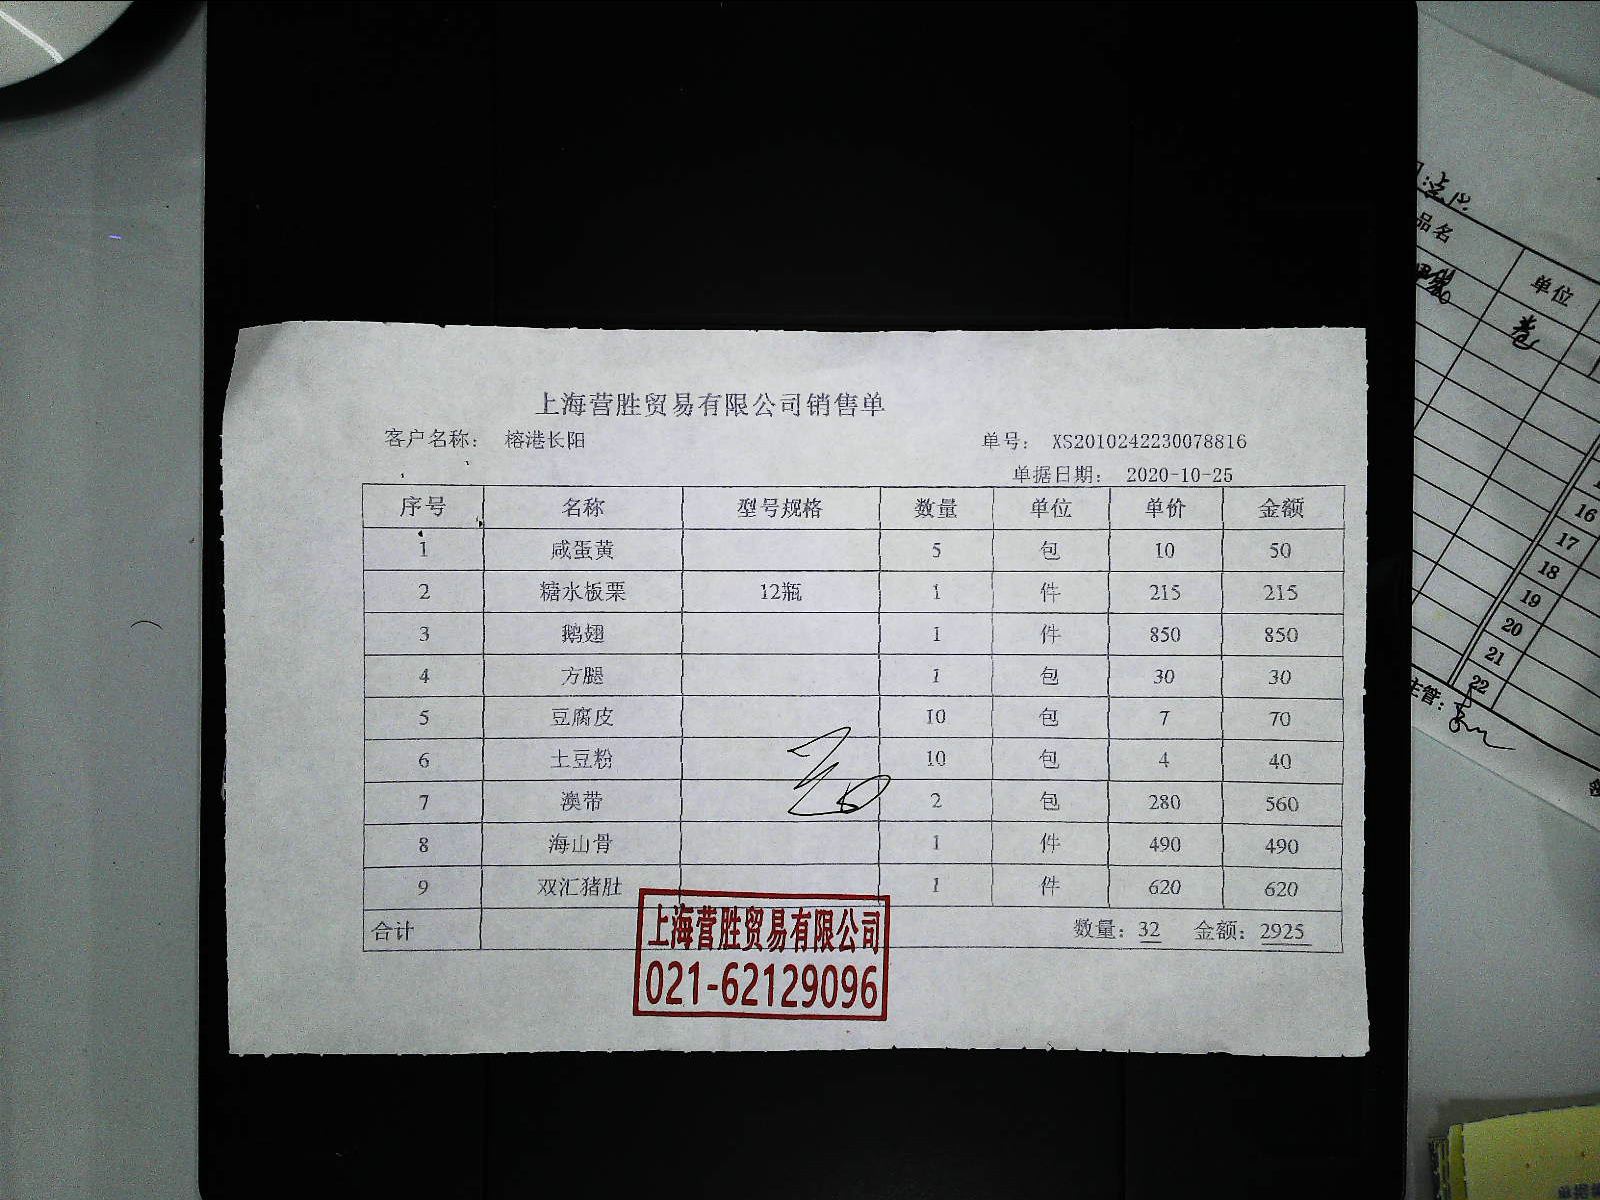 上海营胜贸易有限公司销售单
客户名称： 榕港长阳 单号： XS2010242230078816
单据日期： 2020-10-25
序号 名称 型号规格 数量 单位 单价 金额
1 咸蛋黄 5 包 10 50
2 糖水板栗 12瓶 1 件 215 215
3 鹅翅 1 件 850 850
4 方腿 1 包 30 30
5 豆腐皮 10 包 7 70
6 土豆粉 10 包 4 40
7 澳带 2 包 280 560
8 海山骨 1 件 490 490
9 双汇猪肚 1 件 620 620
合计 数量：32 金额：2925
上海营胜贸易有限公司
021-62129096
品名 单位
卷
16
17
18
19
20
21
22
主管：